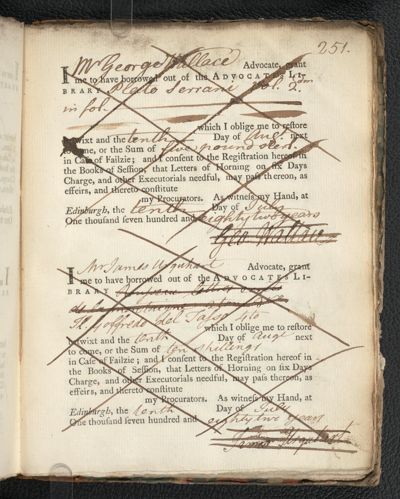 251.
I Mr George Wallace Advocate, grant
me to have borrowed out of the ADVOCATES LI-
BRARY Plato Serrani vol. 2. dm
in fol.
which I oblige me to restore
betwixt and the tenth Day of Aug. next
to come, or the Sum of five pound sterl.
in Case of Failzie; and I consent to the Registration hereof in
the Books of Session, that Letters of Horning on six Days
Charge, and other Executorials needful, may pass thereon, as
effeirs, and thereto constitute
my Procurators. As witness my Hand, at
Edinburgh, the tenth Day of July
One thousand seven hundred and eighty two years
Geo Wallace
I Mr James Urquhart Advocate, grant
me to have borrowed out of the ADVOCATES LI-
BRARY
Il Goffredo del Tasso 4to
which I oblige me to restore
betwixt and the tenth Day of Augt next
to come, or the Sum of ten shillings
in Case of Failzie; and I consent to the Registration hereof in
the Books of Session, that Letters of Horning on six Days
Charge, and other Executorials needful, may pass thereon, as
effeirs, and thereto constitute
my Procurators. As witness my Hand, at
Edinburgh, the tenth Day of July
One thousand seven hundred and eighty two years
James Urquhart